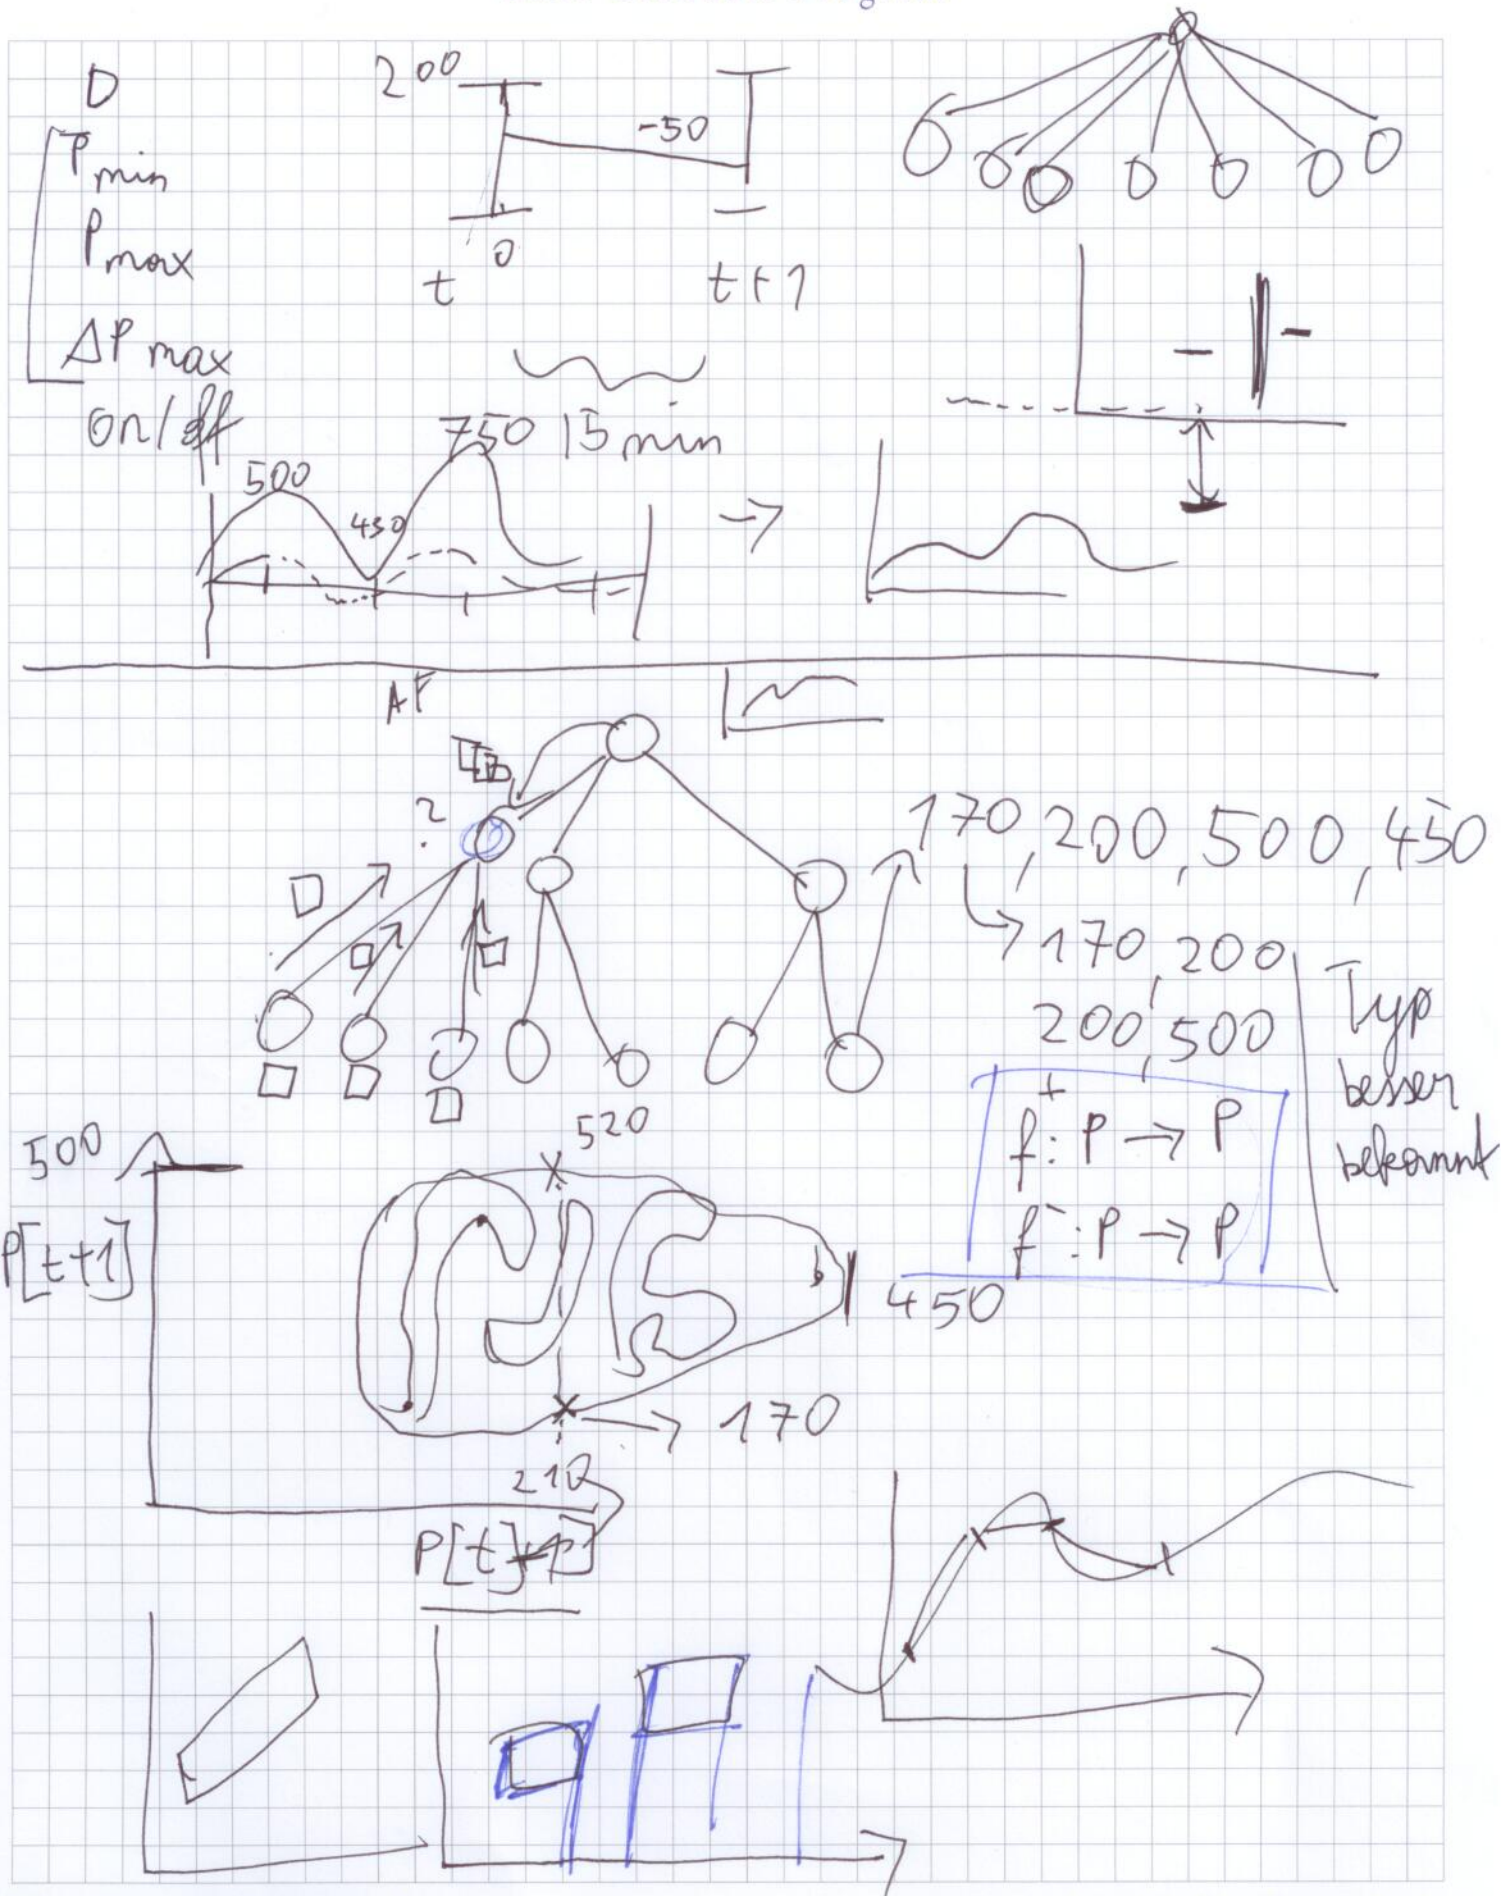 D
P min
P max
ΔP max
on/off
200
-50
0
t
t+1
750
15 min
500
430
AF
?
170, 200, 500, 450
170, 200
200, 500
Typ
besser
bekannt
f⁺: P → P
f⁻: P → P
500
P[t+1]
520
450
170
210
P[t]